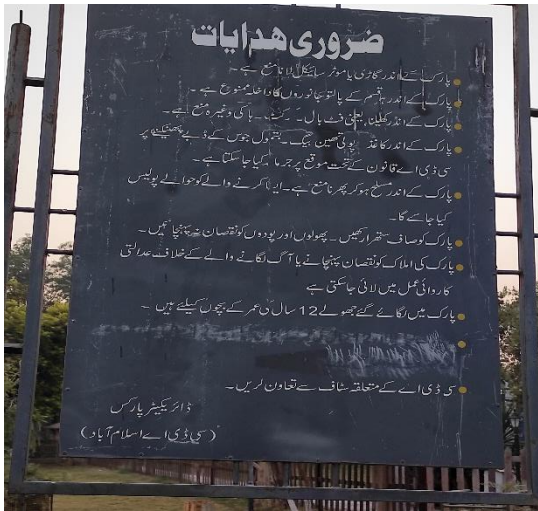 ضروری ھدایات
پارک کے اندر گاڑی یا موٹر سائیکل لانا منع ہے۔
پارک کے اندر ہر قسم کے پالتو جانوروں کا داخلہ ممنوع ہے۔
پارک کے اندر کھیلنا یعنی فٹ بال۔ کرکٹ۔ ہاکی وغیرہ منع ہے۔
پارک کے اندر کاغذ پولی تھین بیگ۔ بشمول جوس کے ڈبے پھینکنے پر
سی ڈی اے قانون کے تحت موقع پر جرمانہ کیا جا سکتا ہے۔
پارک کے اندر مسلح ہو کر پھرنا منع ہے۔ ایسا کرنے والے کو حوالے پولیس
کیا جائے گا۔
پارک کو صاف ستھرا رکھیں۔ پھولوں اور پودوں کو نقصان نہ پہنچائیں۔
پارک کی املاک کو نقصان پہنچانے یا آگ لگانے والے کے خلاف عدالتی
کاروائی عمل میں لائی جا سکتی ہے
پارک میں لگائے گئے جھولے 12 سال کی عمر کے بچوں کیلئے ہیں۔
سی ڈی اے کے متعلقہ سٹاف سے تعاون کریں۔
ڈائریکٹر پارکس
(سی ڈی اے اسلام آباد)